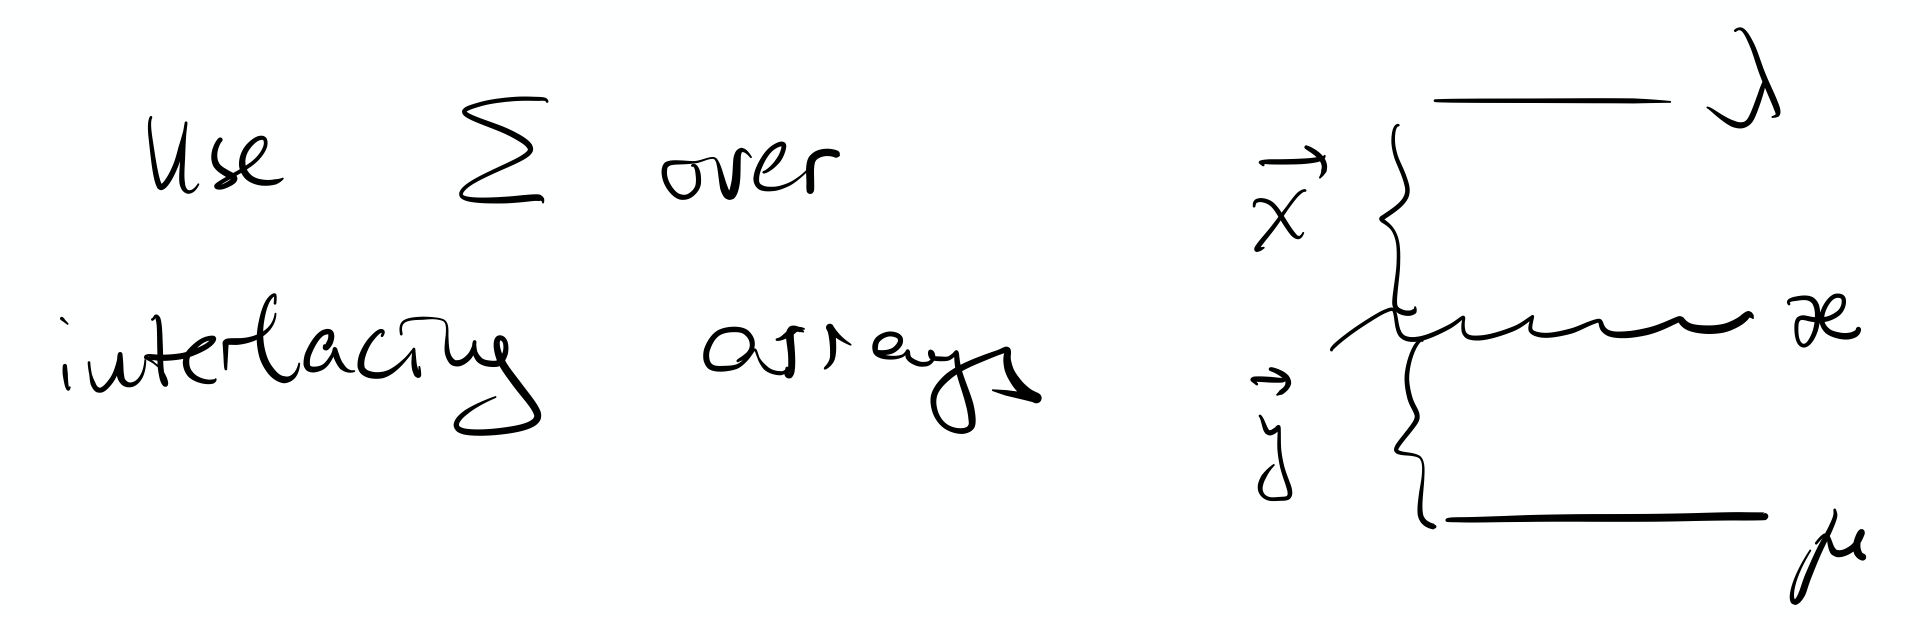 Use Σ over
interlacing arrays
λ
x⃗
æ
y⃗
μ